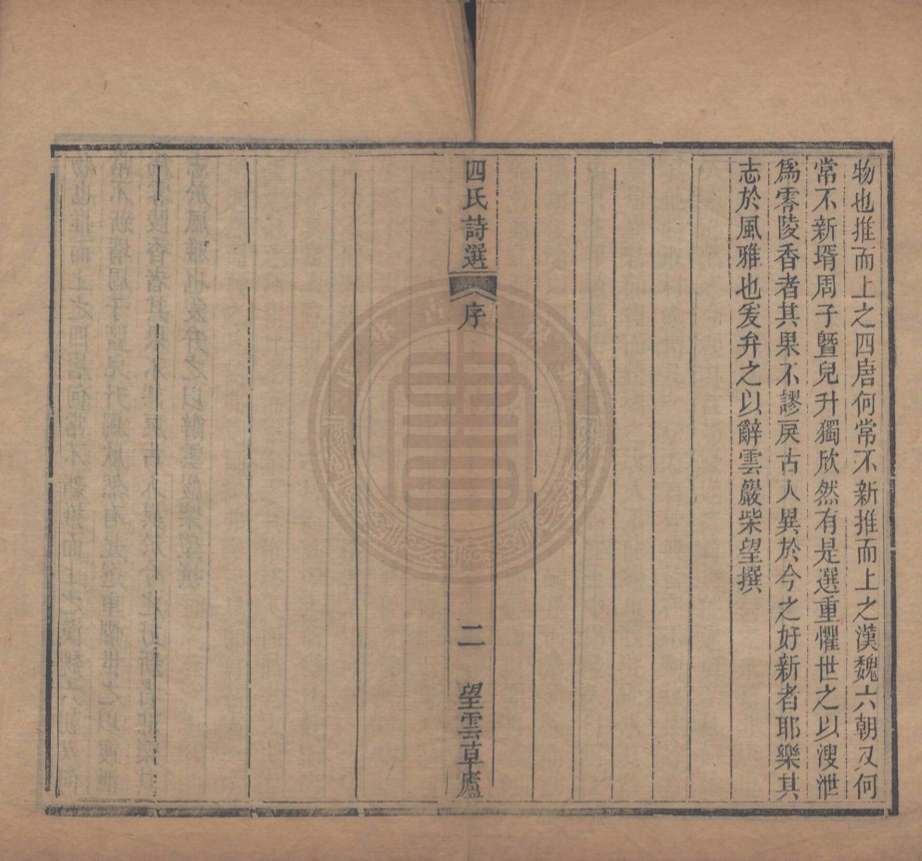 物也推而上之四唐何常不新推而上之漢魏六朝又何
常不新壻周子曁兒升獨欣然有是選重懼世之以溲泄
爲零陵香者其果不謬戾古人異於今之好新者耶樂其
志於風雅也爰弁之以辭雲嚴柴望撰
四氏詩選 序 二 望雲草廬